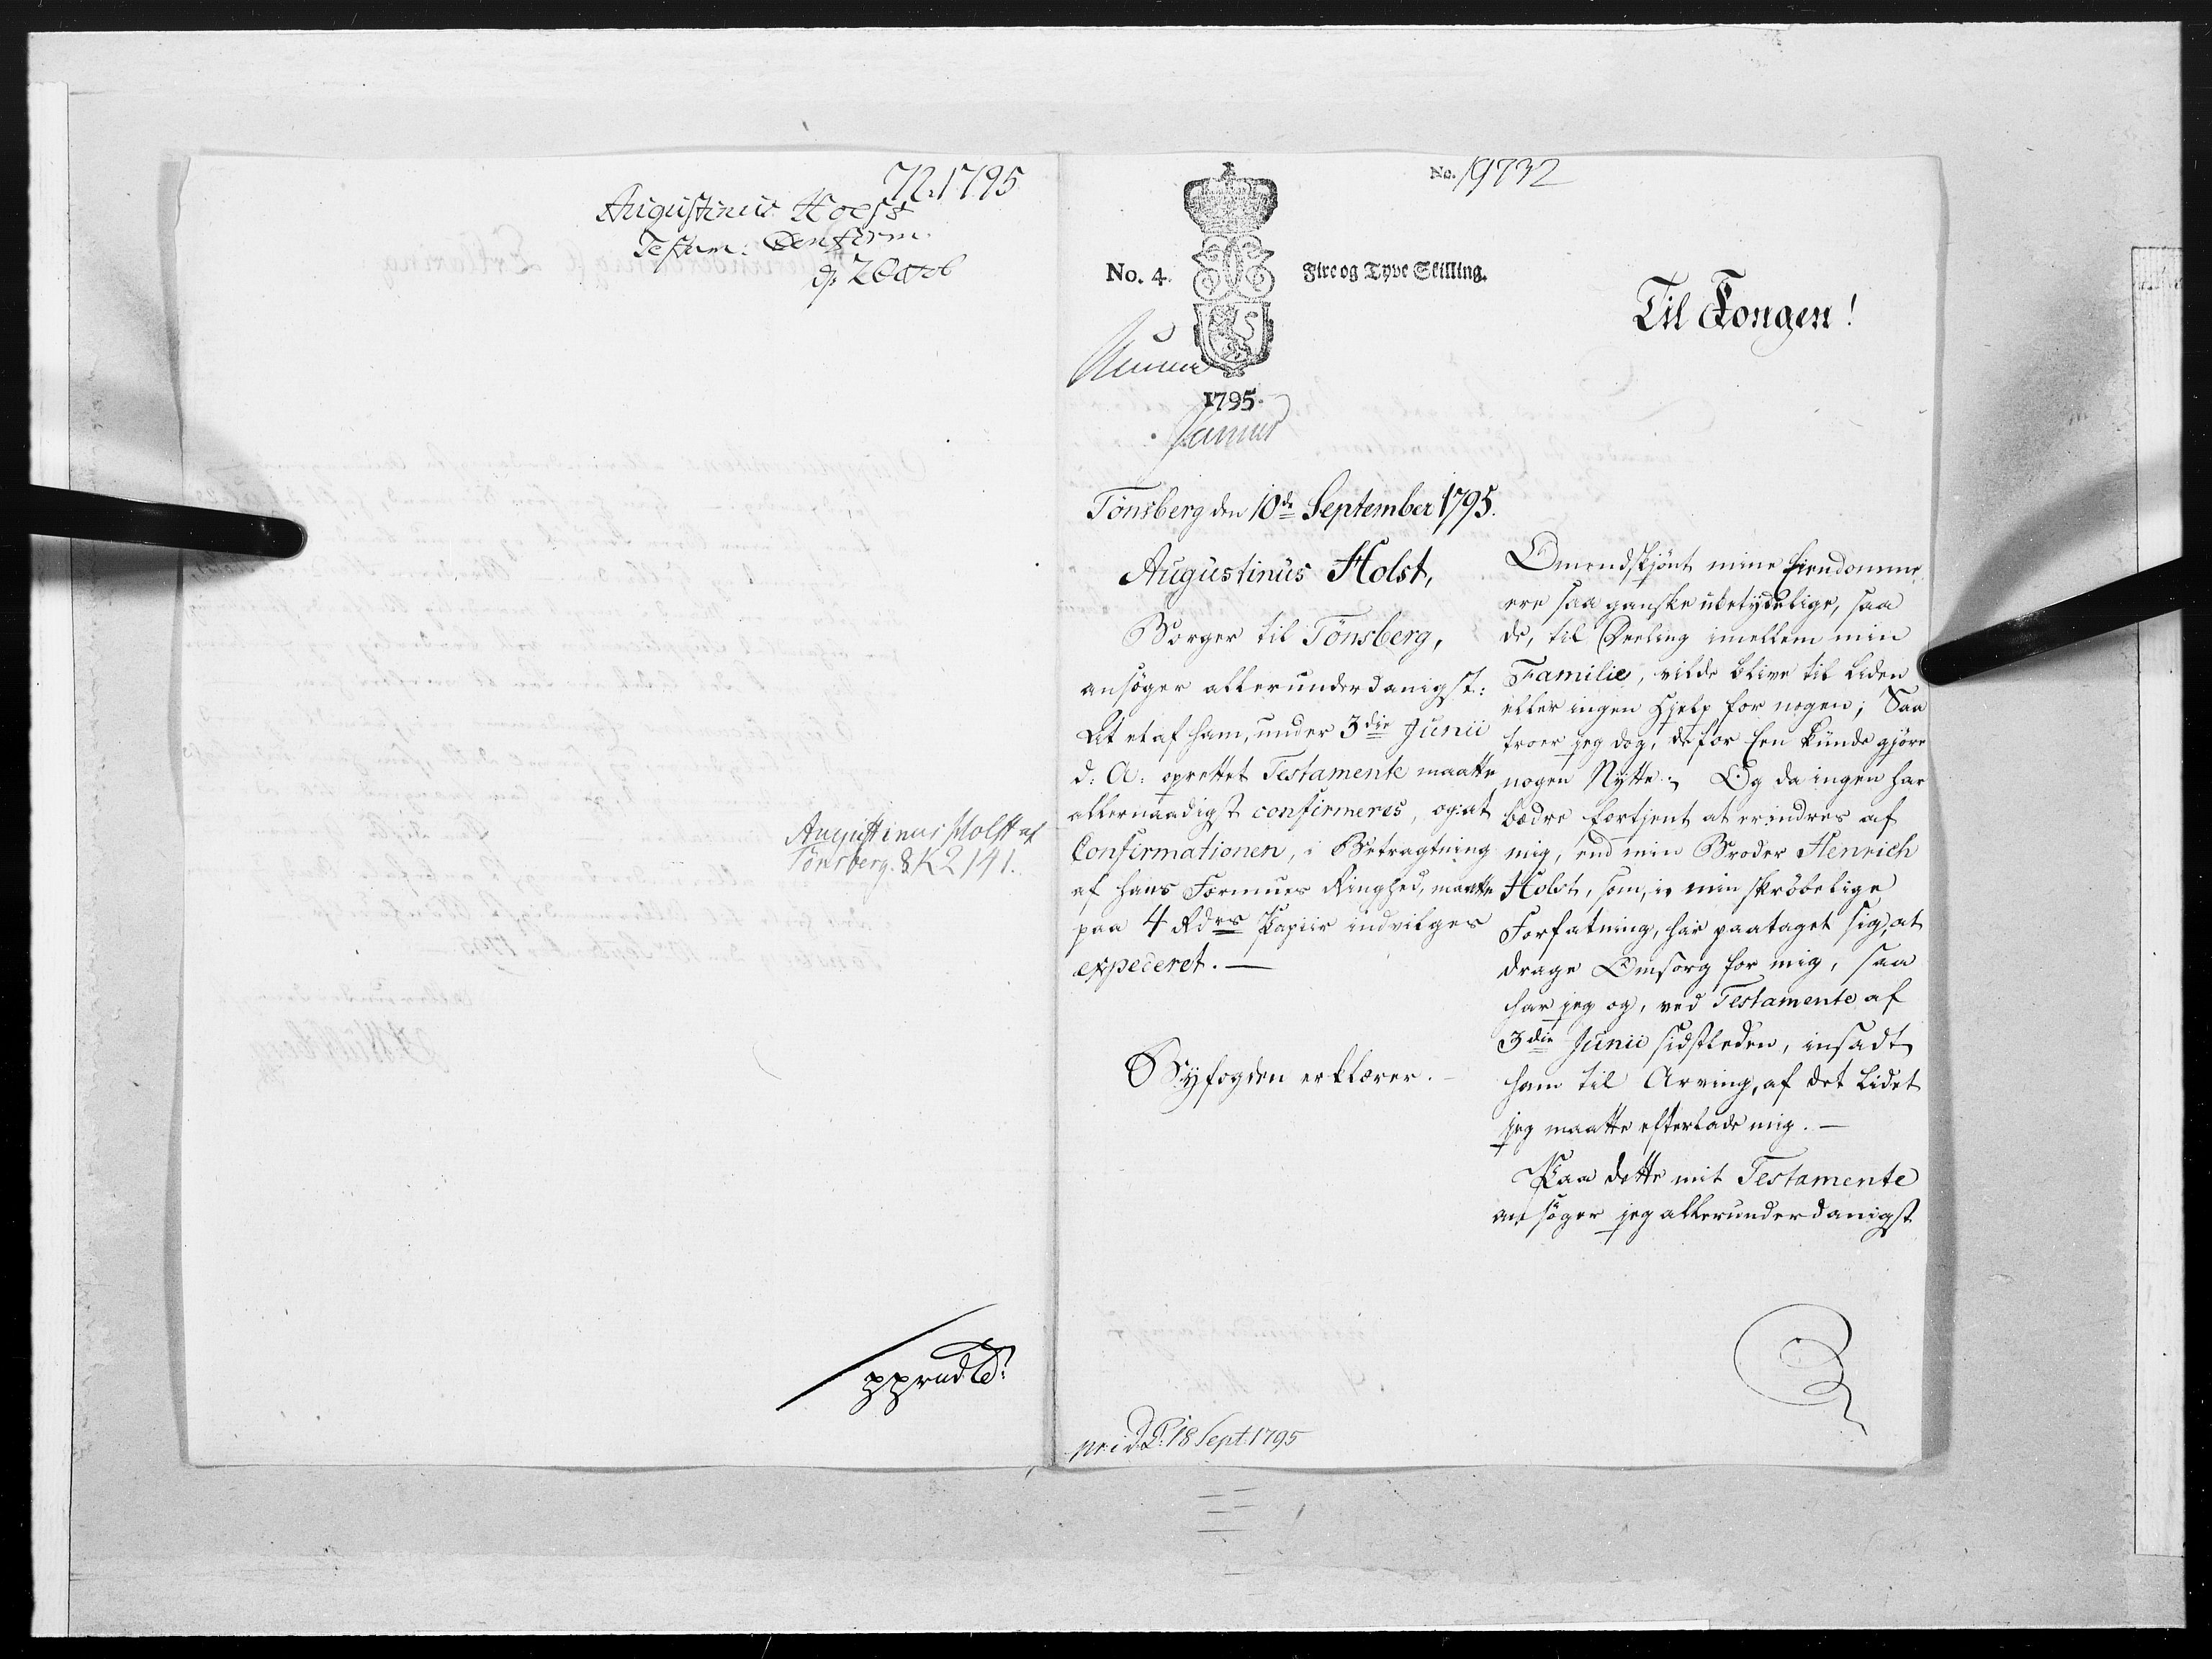 N. 1795
Augustinus Holst
Testam: Confirm.
d: 2 Octob
Augustinus Holst af
Tönsberg. 8 K 2141.
No. 19732
No. 4.
Fire og Tyve Skilling.
Til Kongen!
1795.
Tönsberg den 10de September 1795.
Augustinus Holst,
Borger til Tönsberg,
ansøger allerunderdanigst:
At et af ham, under 3die Junii
d: A: oprettet Testamente maatte
allernaadigst confirmeres, og at
Confirmationen, i Betragtning
af hans Formues Ringhed, maatte
paa 4 Rdrs Papiir indvilges
expederet. —
Byfogden erklærer. —
Omendskjønt mine Eiendomme
ere saa ganske ubetydelige, saa
de, til Deeling imellem min
Familie, vilde blive til liden
eller ingen Hjelp for nogen; Saa
troer jeg dog, de for Een kunde gjøre
nogen Nytte; Og da ingen har
bedre fortjent at erindres af
mig, end min Broder Henrich
Holst, som, i min skrøbelige
Forfatning, har paataget sig, at
drage Omsorg for mig, saa
har jeg og, ved Testamente af
3die Junii sidstleden, insadt
ham til Arving, af det lidet
jeg maatte efterlade mig. —
Paa dette mit Testamente
ansøger jeg allerunderdanigst
18 Sept: 1795